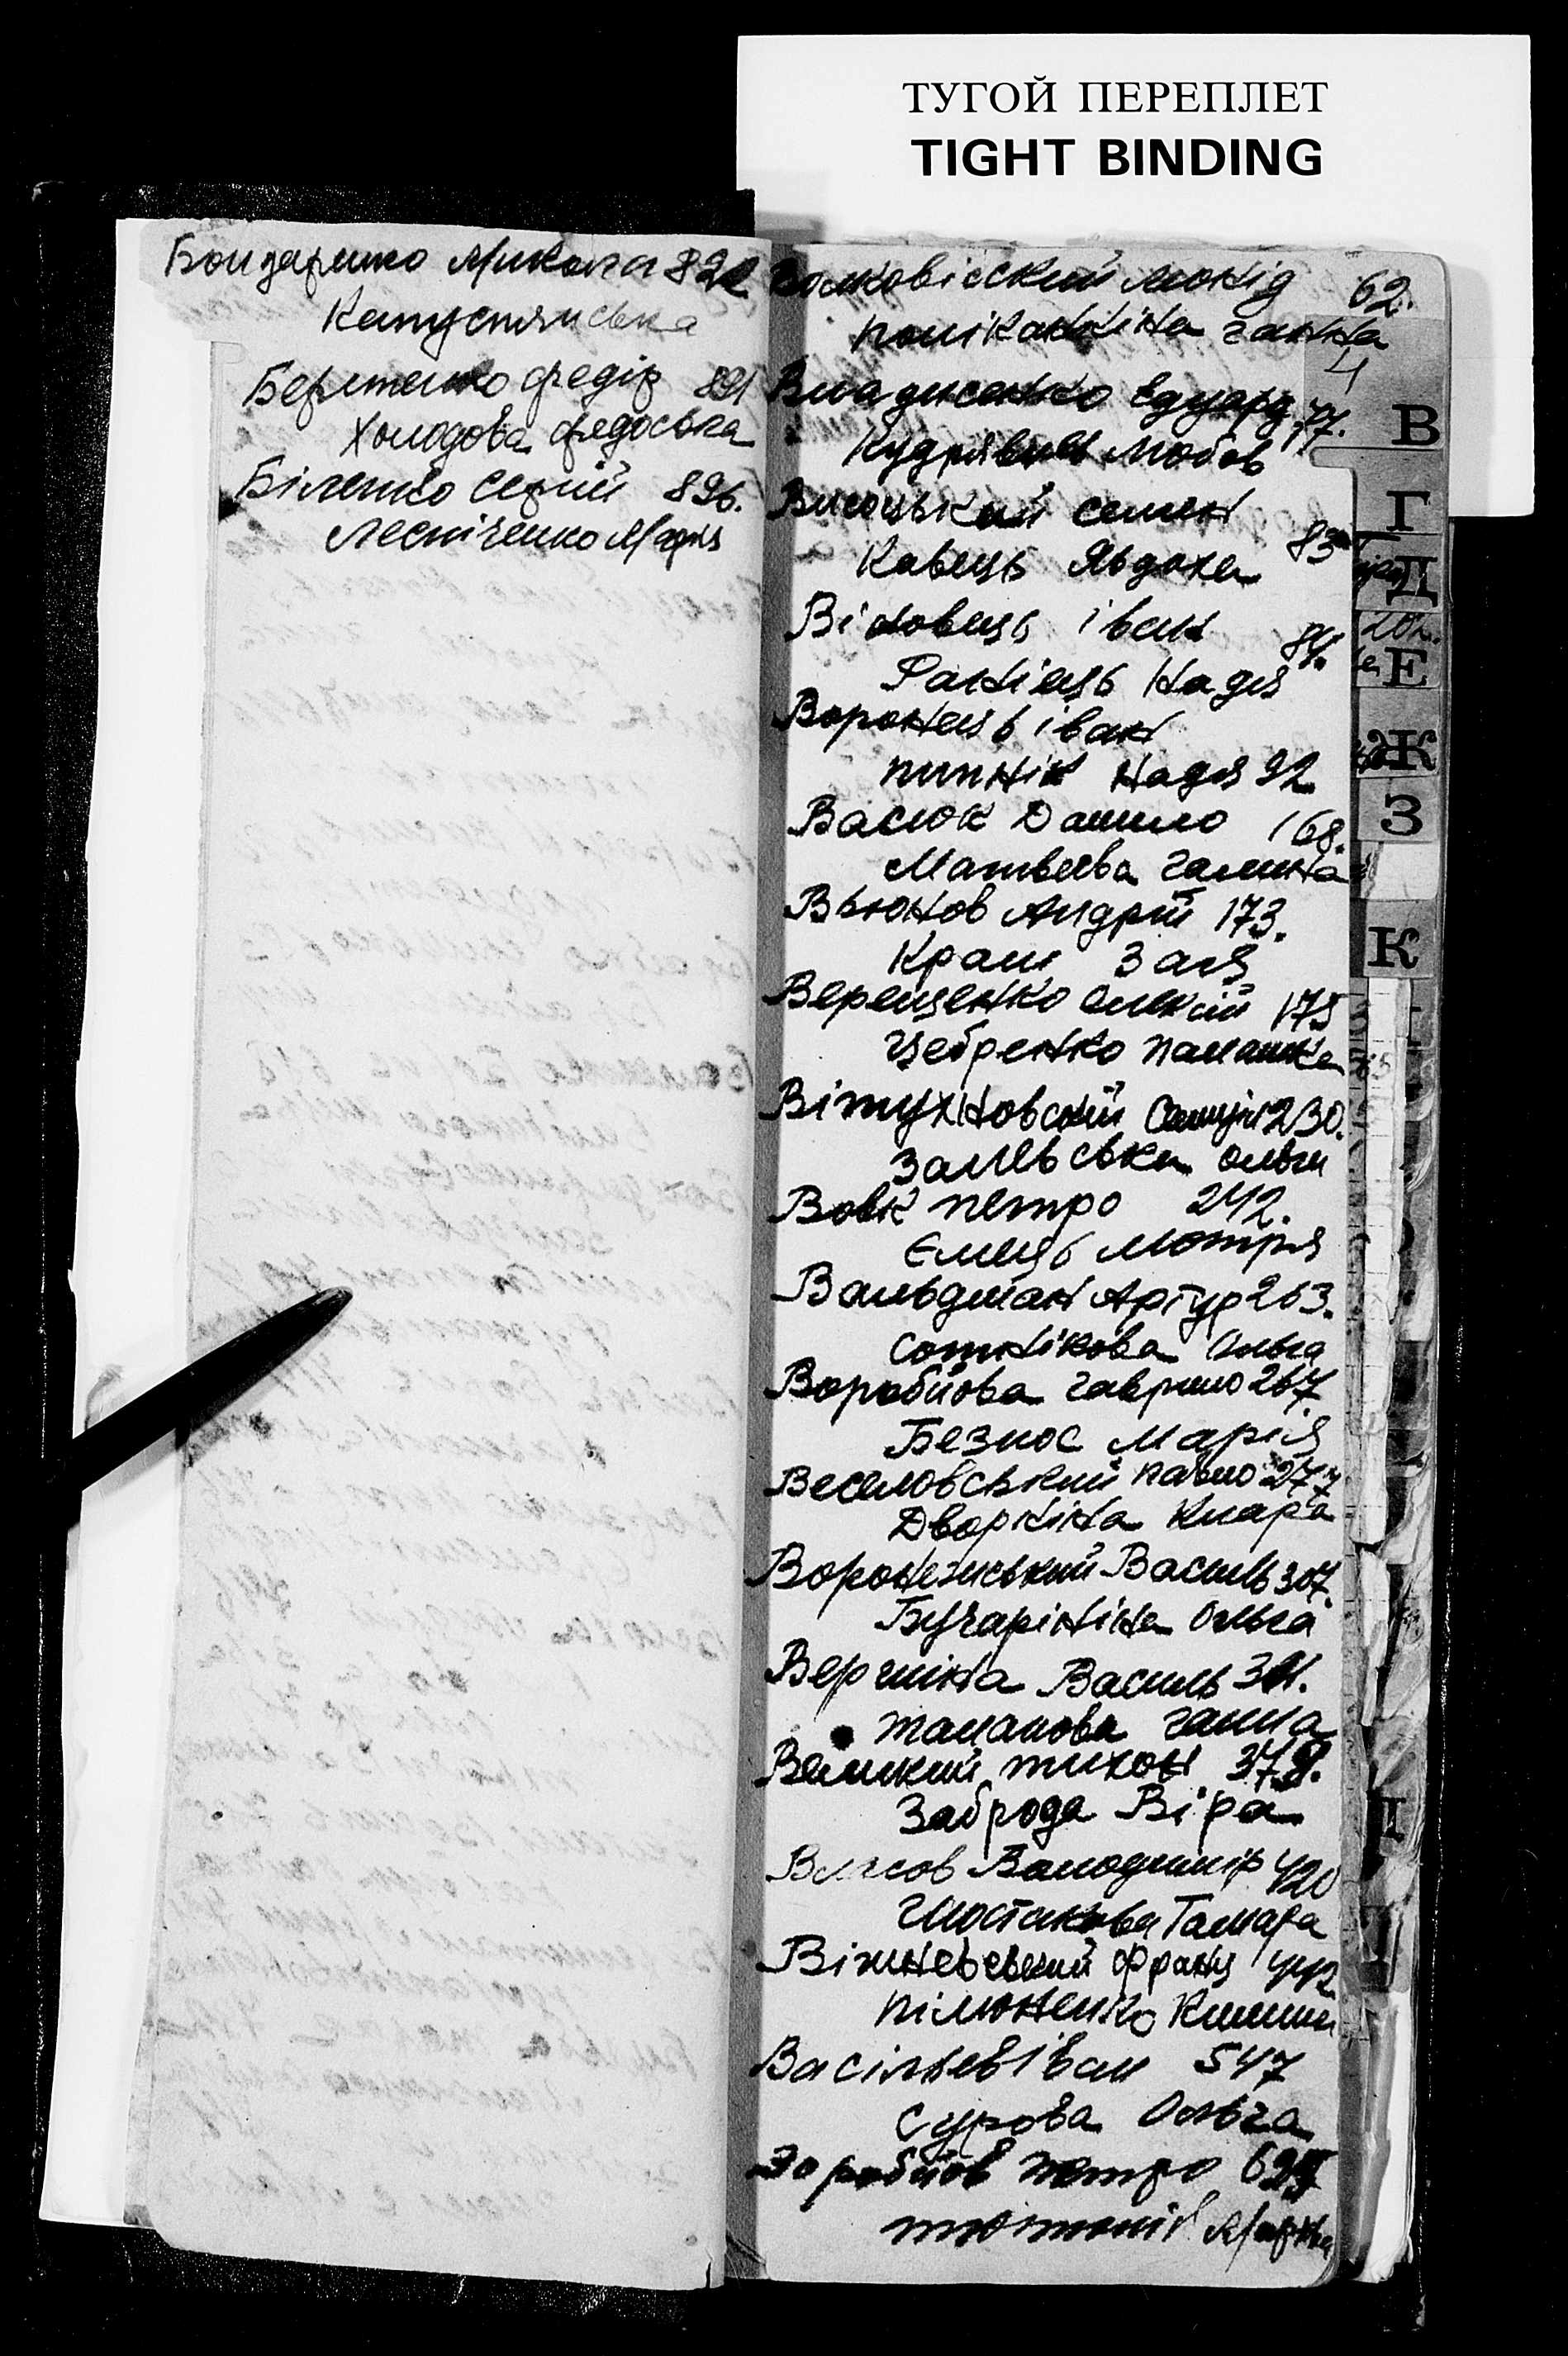 ТУГОЙ ПЕРЕПЛЕТ
TIGHT BINDING
Бондаренко Микола 822
Капустянська
Берштенко Федір 821
Холодова Федоська
Біленко Сергій 896.
Лесніченко Марія
Ганна
62.
Владисенко Едуард 77.
Кудрявець Любов
Висоцький Семен
Кавець Явдоха 83
Віновець іван 84.
Ранієць Надя
Воронець іван
Пипнік Надя 92
Васюк Данило 168.
Матвеєва Галина
Вьюнов Андрій 173.
Крам Зая
Верещенко Олексій 175
Цебренко Палашка
Вітухновский Самуїл 230.
Залевська Ольга
Вовк Петро 242.
Ємець Мотря
Вальдман Артур 263.
Сотнікова Ольга
Воробйова Гаврило 267
Безнос Марія
Веселовський Павло 277
Дворкіна Клара
Воронежський Василь 307.
Бугарініна Ольга
Василь
Ганна
Великий Тихон 378.
Заброда Віра
Власов Володимир 420
Шостакова Тамара
Вішневський Франц 442
Пілюненко
Васільев іван 547
Сурова Ольга
Воробйов Петро
В
Г
Д
Е
Ж
З
К